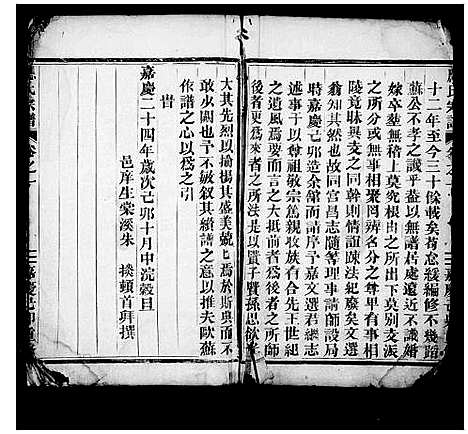 十二年至今三十餘載矣苟怠緩編修不幾蹈
蘇公不孝之誡乎盖以無譜居處遠近不識婚
嫁卒塟無稽上莫究根由之所出下莫别支派
之所分或無事相聚罔辨名分之尊卑有事相
竟昧與支之同幹則情誼踈法紀廢矣文選
翁知其然也故同宫昌志隨等理事請師設局
時嘉慶己夘造余舘而請序予嘉文選君繼志
述事于以尊祖敬宗篤親收族有合先王世紀
之遺風焉要而言之大抵前者爲後者之所師
後者更爲來者之所法是以貴子賢孫思欲
大其先烈以揄揚其盛美兢兢焉於斯與而不
敢少闕也予不敏叙其續譜之意以推夫歐蘇
作譜之心以爲之引
旹
嘉慶二十四年歲次己夘十月中浣穀旦
邑庠生棠溪朱 頓首拜撰